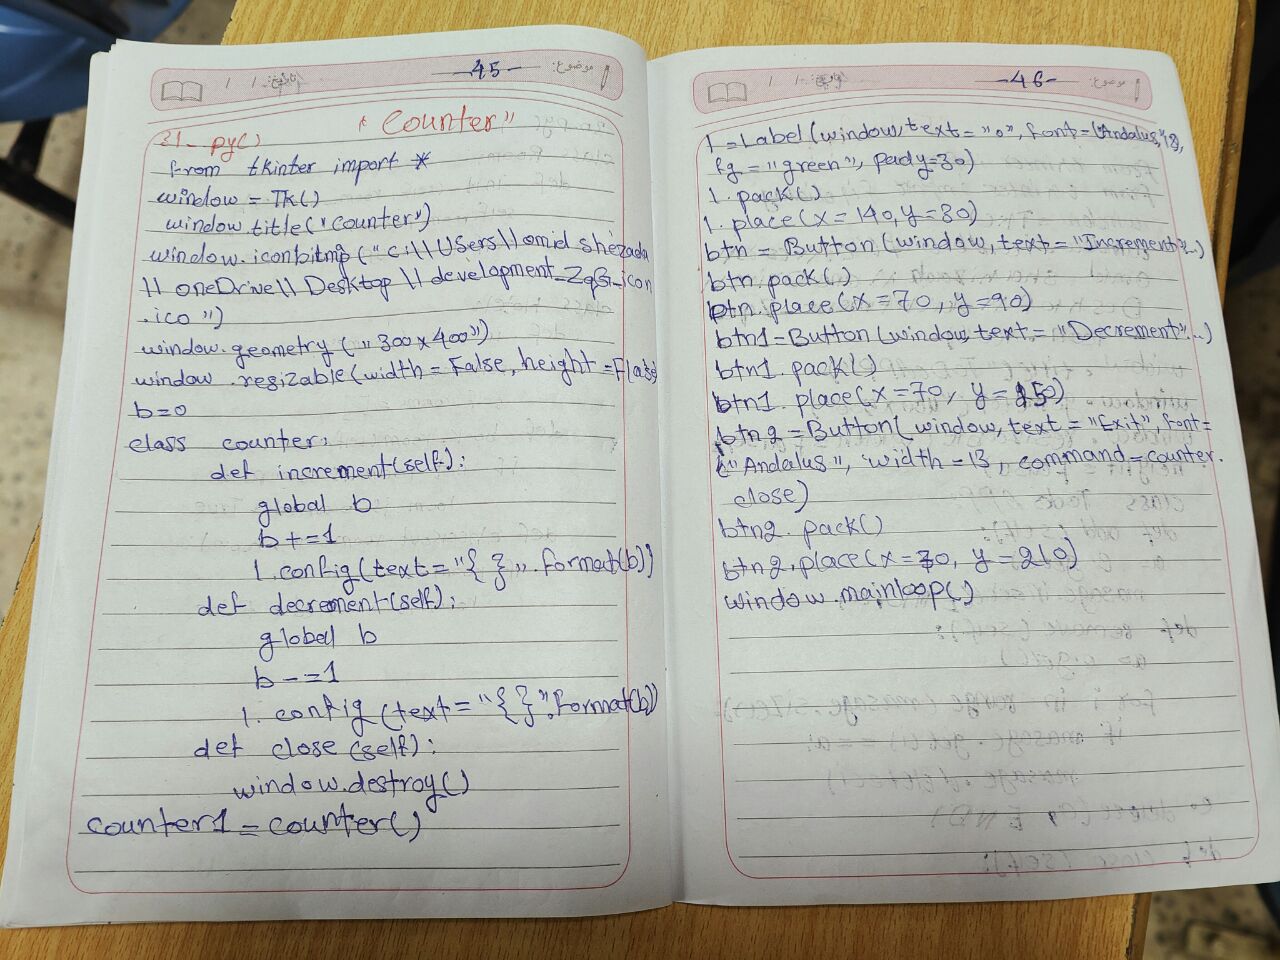 -45-
موضوع:
تاریخ: / /
"Counter"
31_py()
from tkinter import *
window = Tk()
window.title("counter")
window.iconbitmp("c:\\Users\\omid shezada
\\ oneDrive\\ Desktop \\ development_ZqG_icon
.ico")
window.geometry("300x400")
window.resizable(width = False, height = Flase
b=0
class counter:
def increment(self):
global b
b+=1
l.config(text="{ }".format(b))
def decrement(self):
global b
b-=1
l.config(text="{ }".Format(b))
def close(self):
window.destroy()
counter1 = counter()
-46-
موضوع:
تاریخ: / /
l = Label(window, text = "0", font=(Andalus, 18,
fg = "green", pady=30)
l.pack()
l.place(x = 140, y = 80)
btn = Button(window, text = "Increment"...)
btn.pack()
btn.place(x = 70, y = 90)
btn1 = Button(window, text = "Decrement"...)
btn1.pack()
btn1.place(x = 70, y = 150)
btn2 = Button(window, text = "Exit", font =
("Andalus", width = 13, command = counter.
close)
btn2.pack()
btn2.place(x = 70, y = 210)
window.mainloop()